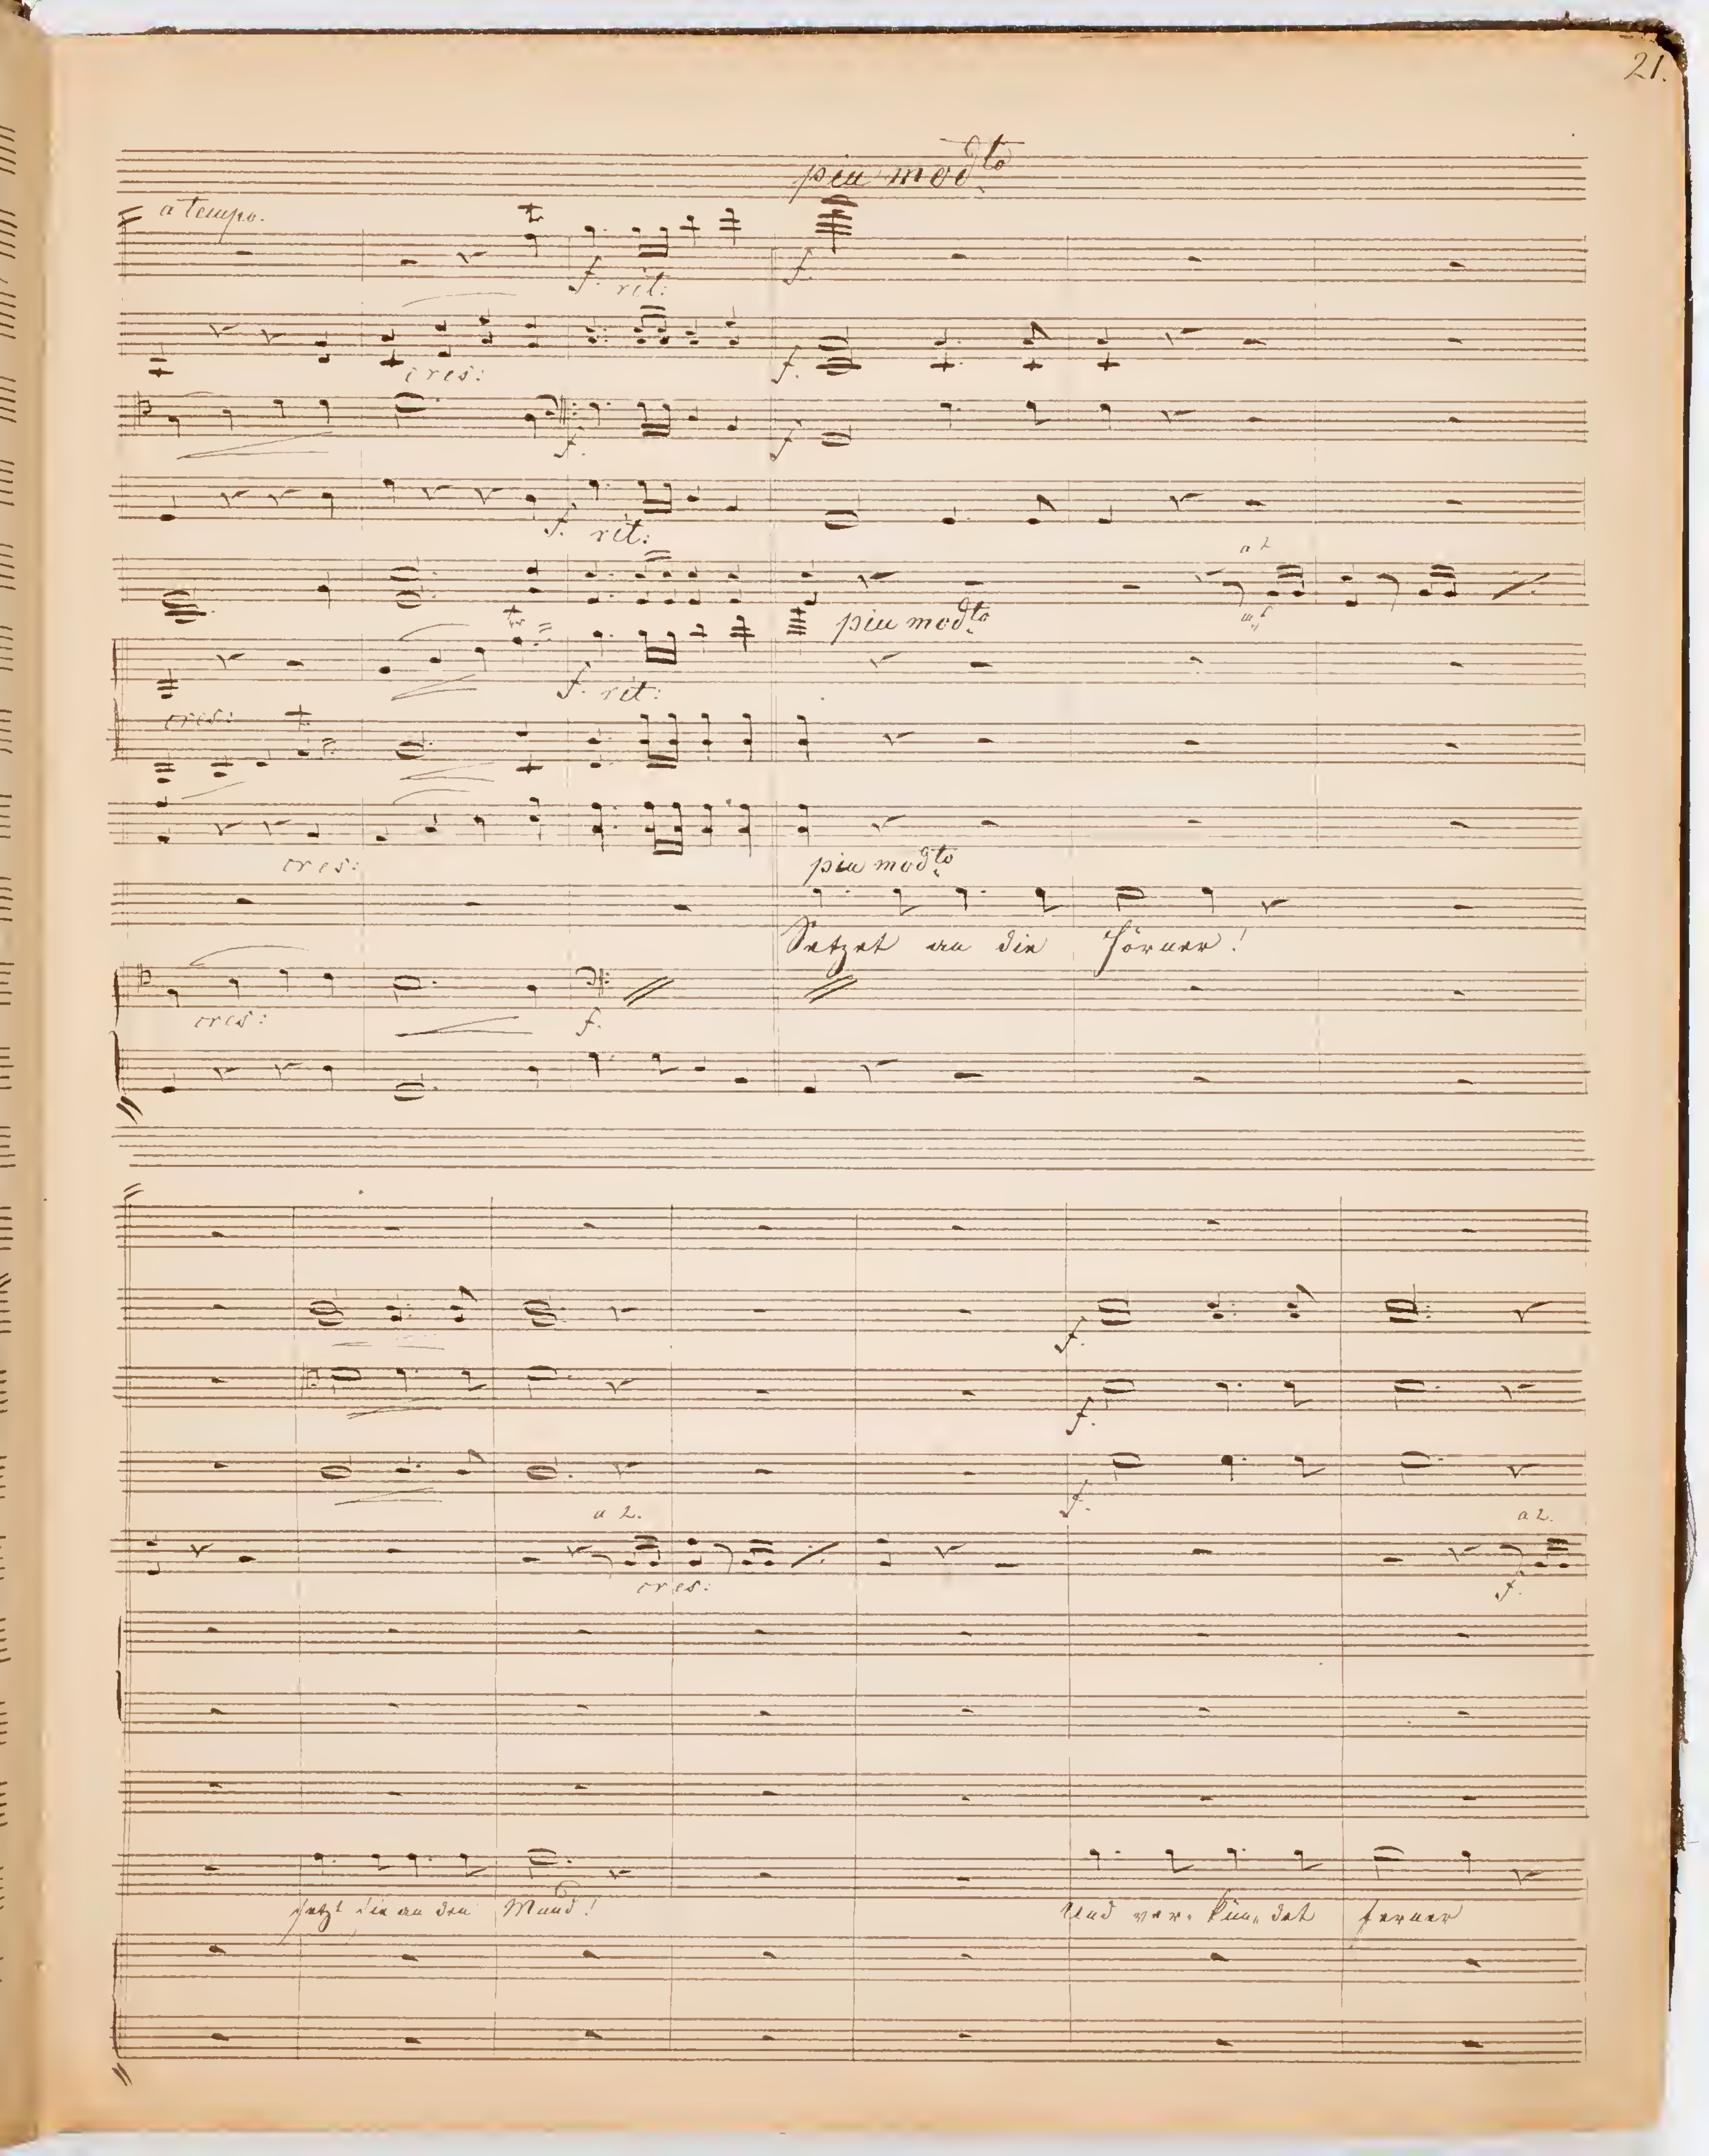 21.
piu modto
a tempo.
f. rit:
f.
cres:
f.
f.
f
f. rit:
a 2
mf
piu modto
tr
f. rit:
cres:
cres:
piu modto
Setzet an die Hörner!
cres:
f.
f.
f.
f.
a 2.
a 2.
cres:
f.
setzt sie an den Mund!
Und ver- kün- det ferner